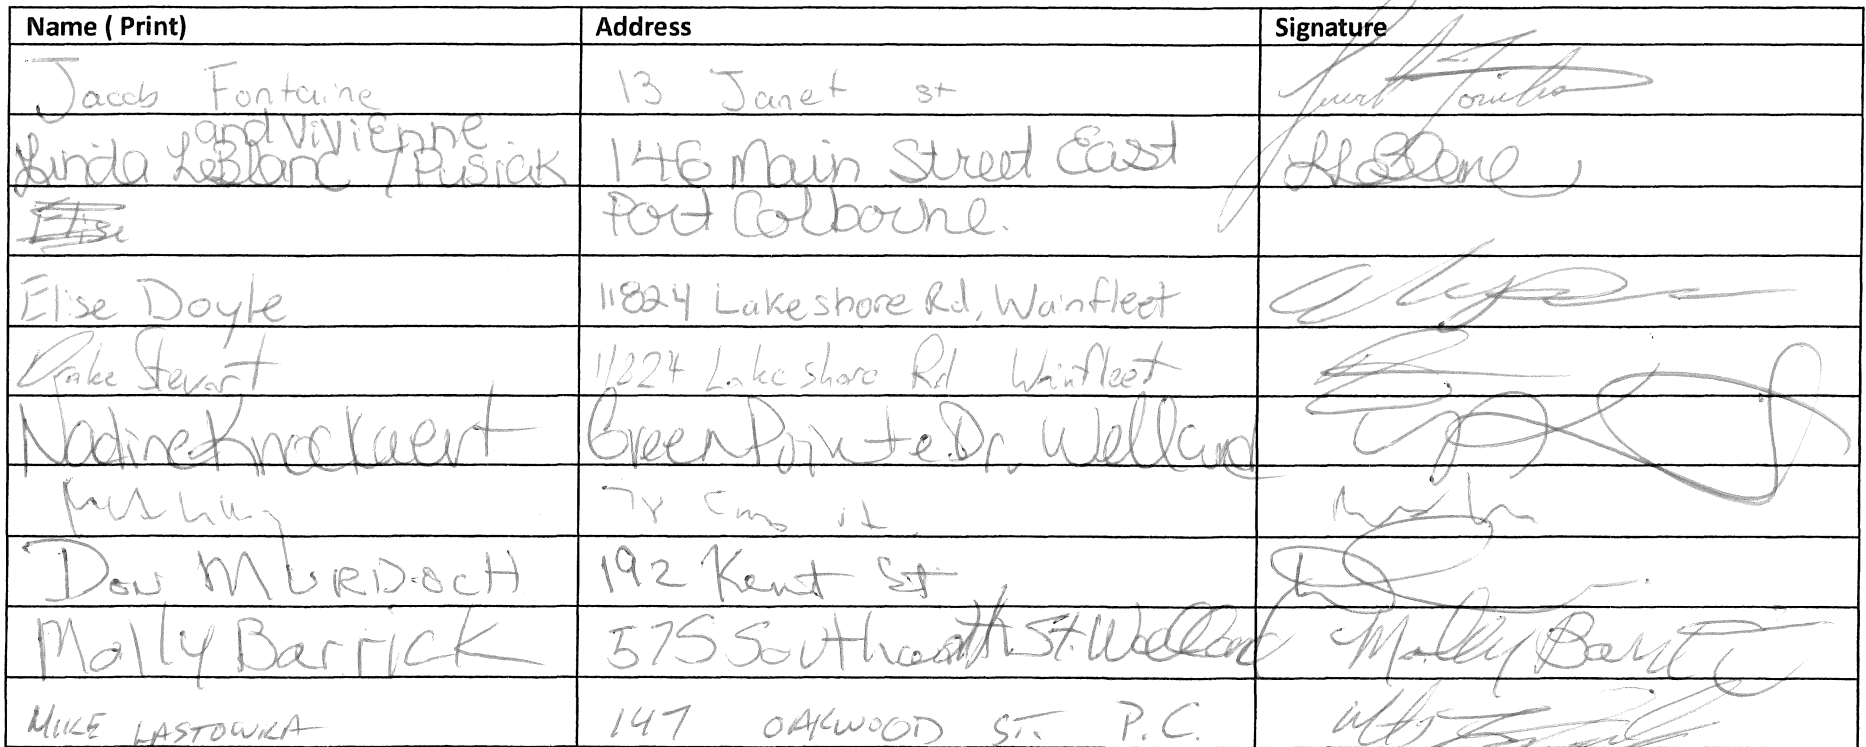 Name ( Print) Address Signature
Jacob Fontaine 13 Janet st
and Vivienne
Linda LeBlanc / Pusiak 146 Main Street East LLeBlanc
Elise Port Colborne.
Elise Doyle 11824 Lakeshore Rd, Wainfleet
Drake Stewart 11824 Lakeshore Rd Wainfleet
Nadine Knockaert Green Pointe Dr. Welland
Don MURDOCH 192 Kent St
Molly Barrick 575 Southworth St. Welland Molly Barrick
MIKE LASTOWKA 147 OAKWOOD ST. P.C.